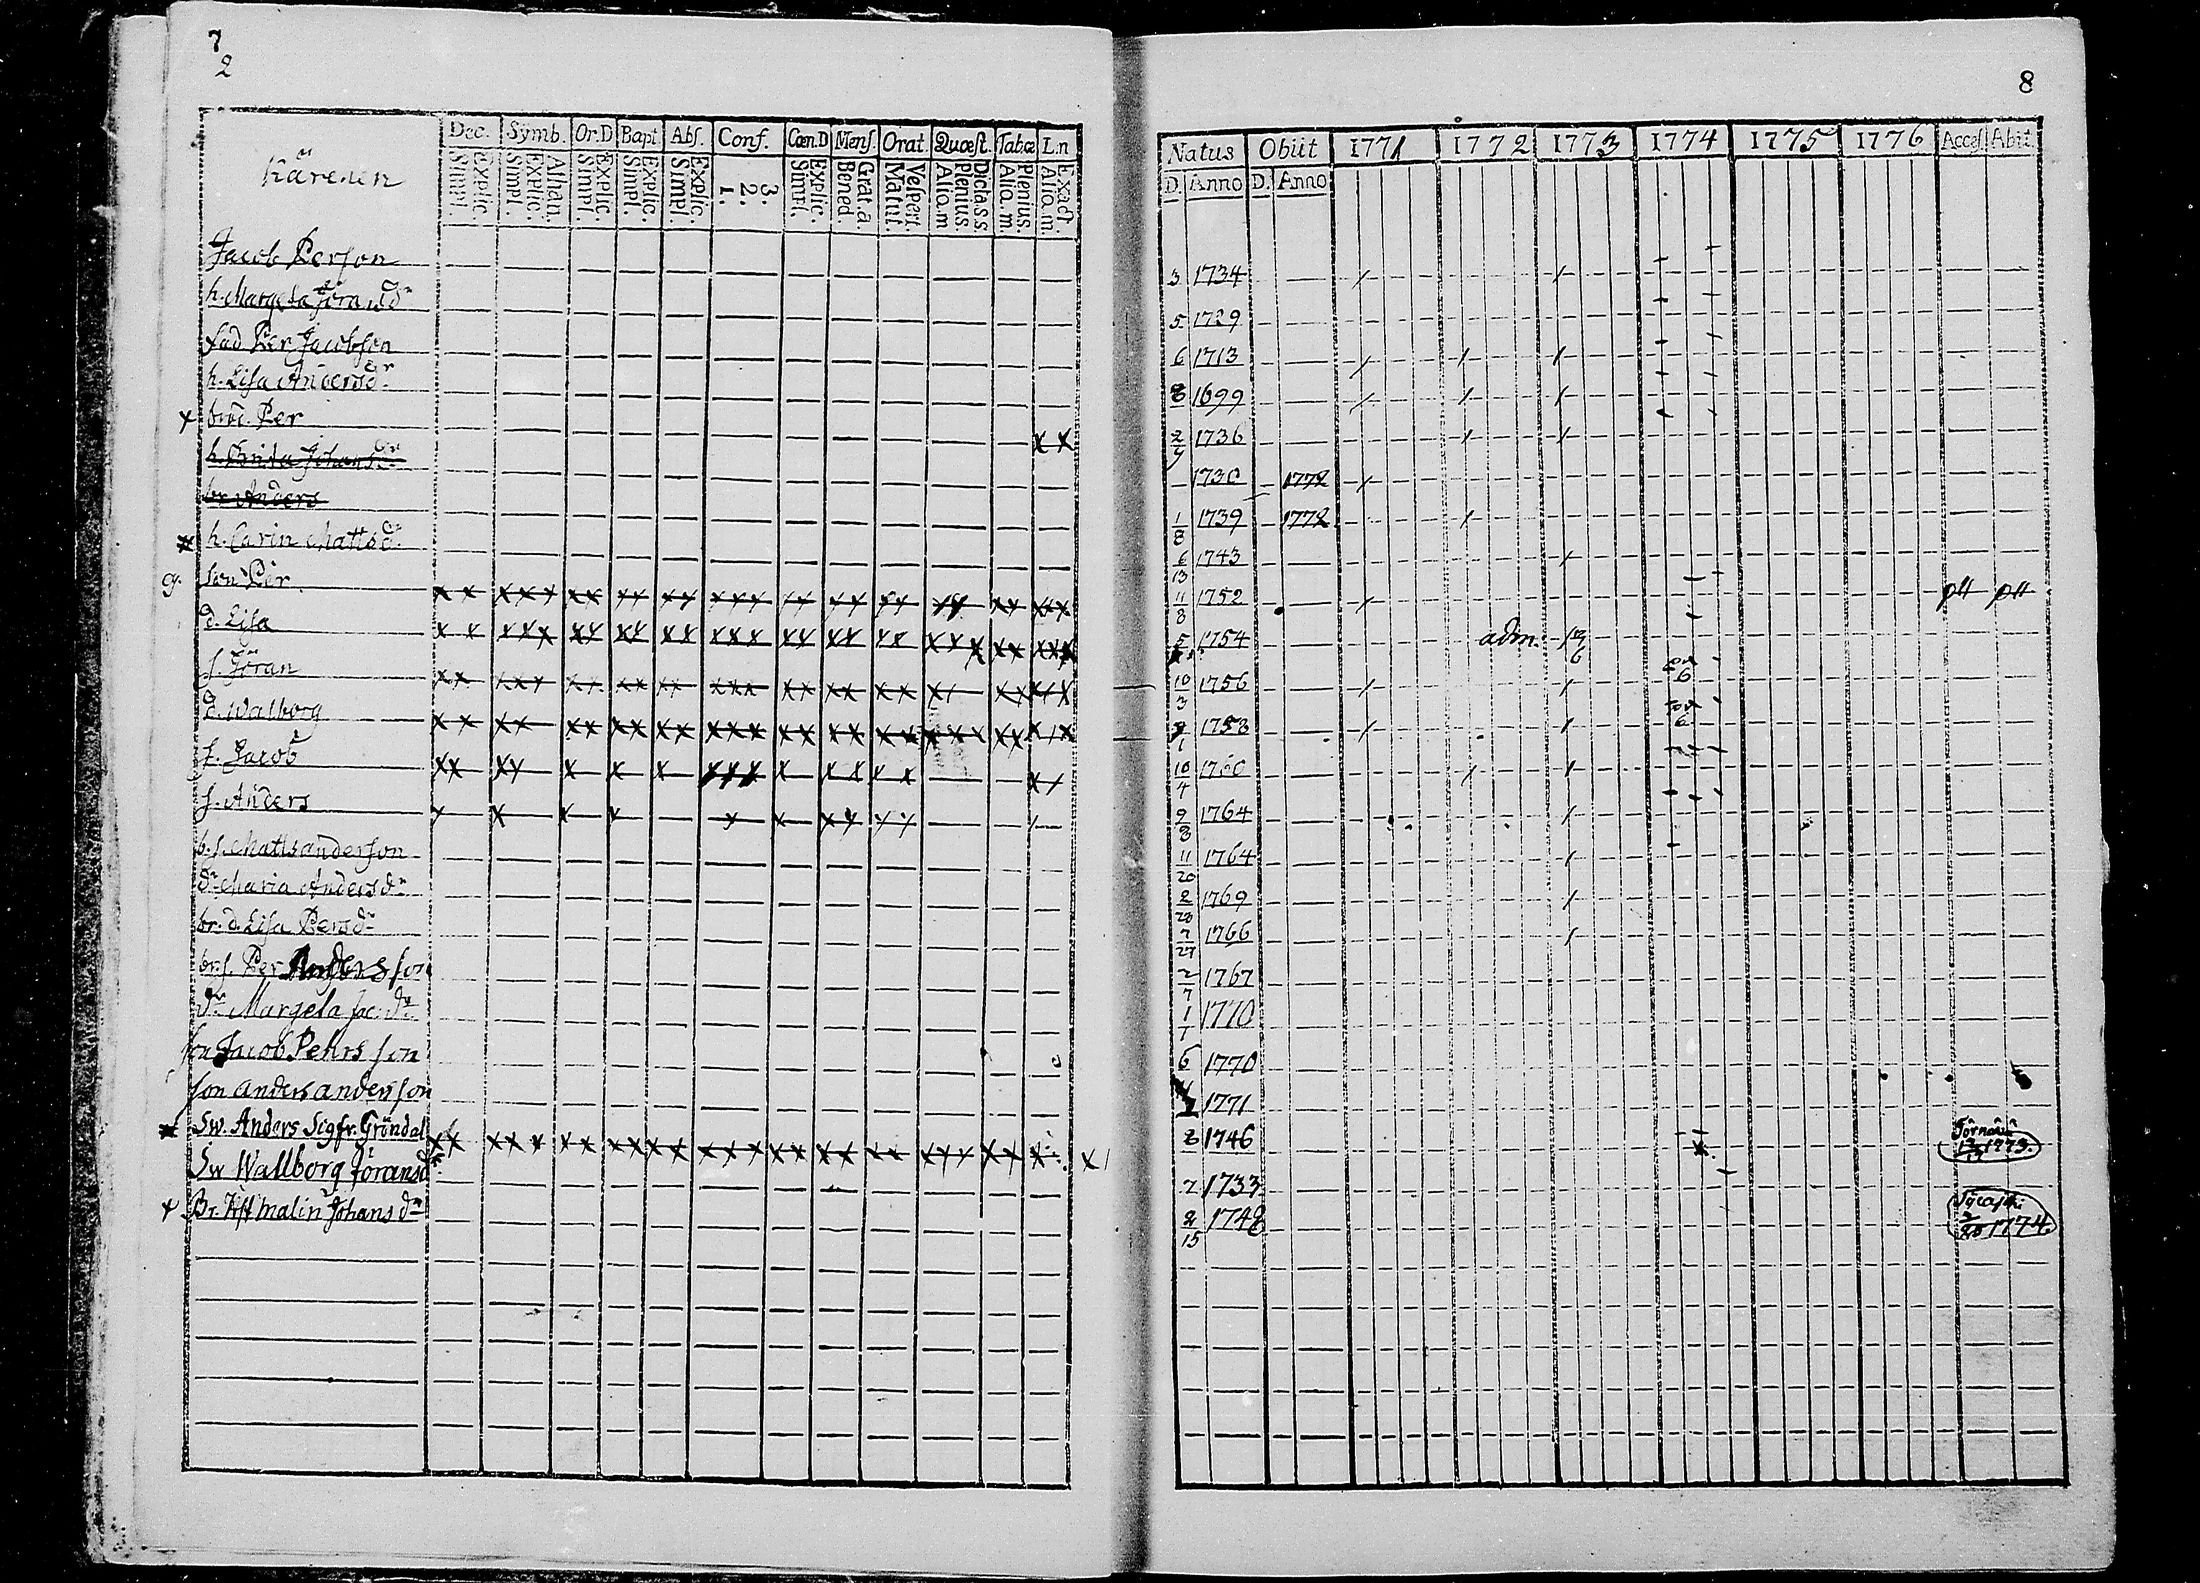 7
2
Dec. Symb. Or.D Bapt Abs. Conf. Cœn.D Mens. Orat. Quæst. Tabæ L.n
Kärenen
Explic. Simpl. Athan. Explic. Simpl. Explic. Simpl. Explic. Simpl. Explic. Simpl. 3. 2. 1. Explic. Simpl. Grat. a. Bened. Vespert. Matut. Dict. a s.s. Plenius. Alio.m Plenius. Alio.m Exact. Alio.m.
Jacob Person
h. Margeta Jörand:r
fad Per Jacobson
h. Lisa Andersd:r
bro. Per
h. Brita Johansd:r
br. Anders
h. Carin Mattsd:r
son Per
d. Lisa
s. Jöran
d. Walborg
s. Jacob
s. Anders
b.s. Matts anderson
d:r Maria Andersd:r
br. d. Lisa Persd:r
br.s. Per Andersson
d:r Margeta Jac:d:r
son Jacob Pehrsson
son anders anderson
Sw. Anders Sigfr. Gröndal
Sw Wallborg Jöransd:r
Br. Hst malin Johansd:r
8
Natus Obiit 1771 1772 1773 1774 1775 1776 Access Abit.
D. Anno D. Anno
3 1734
5 1729
6 1713
8 1699
2/4 1736
1730 1772
1/8 1739 1772
6/13 1743
11/8 1752
5 1754 adm. 13/6
10/3 1756
1758
10/4 1760
9/8 1764
11/20 1764
2/28 1769
7/27 1766
2/7 1767
1/7 1770
6 1770
1771
8 1746 1773.
7 1733
2/15 1748 1774.